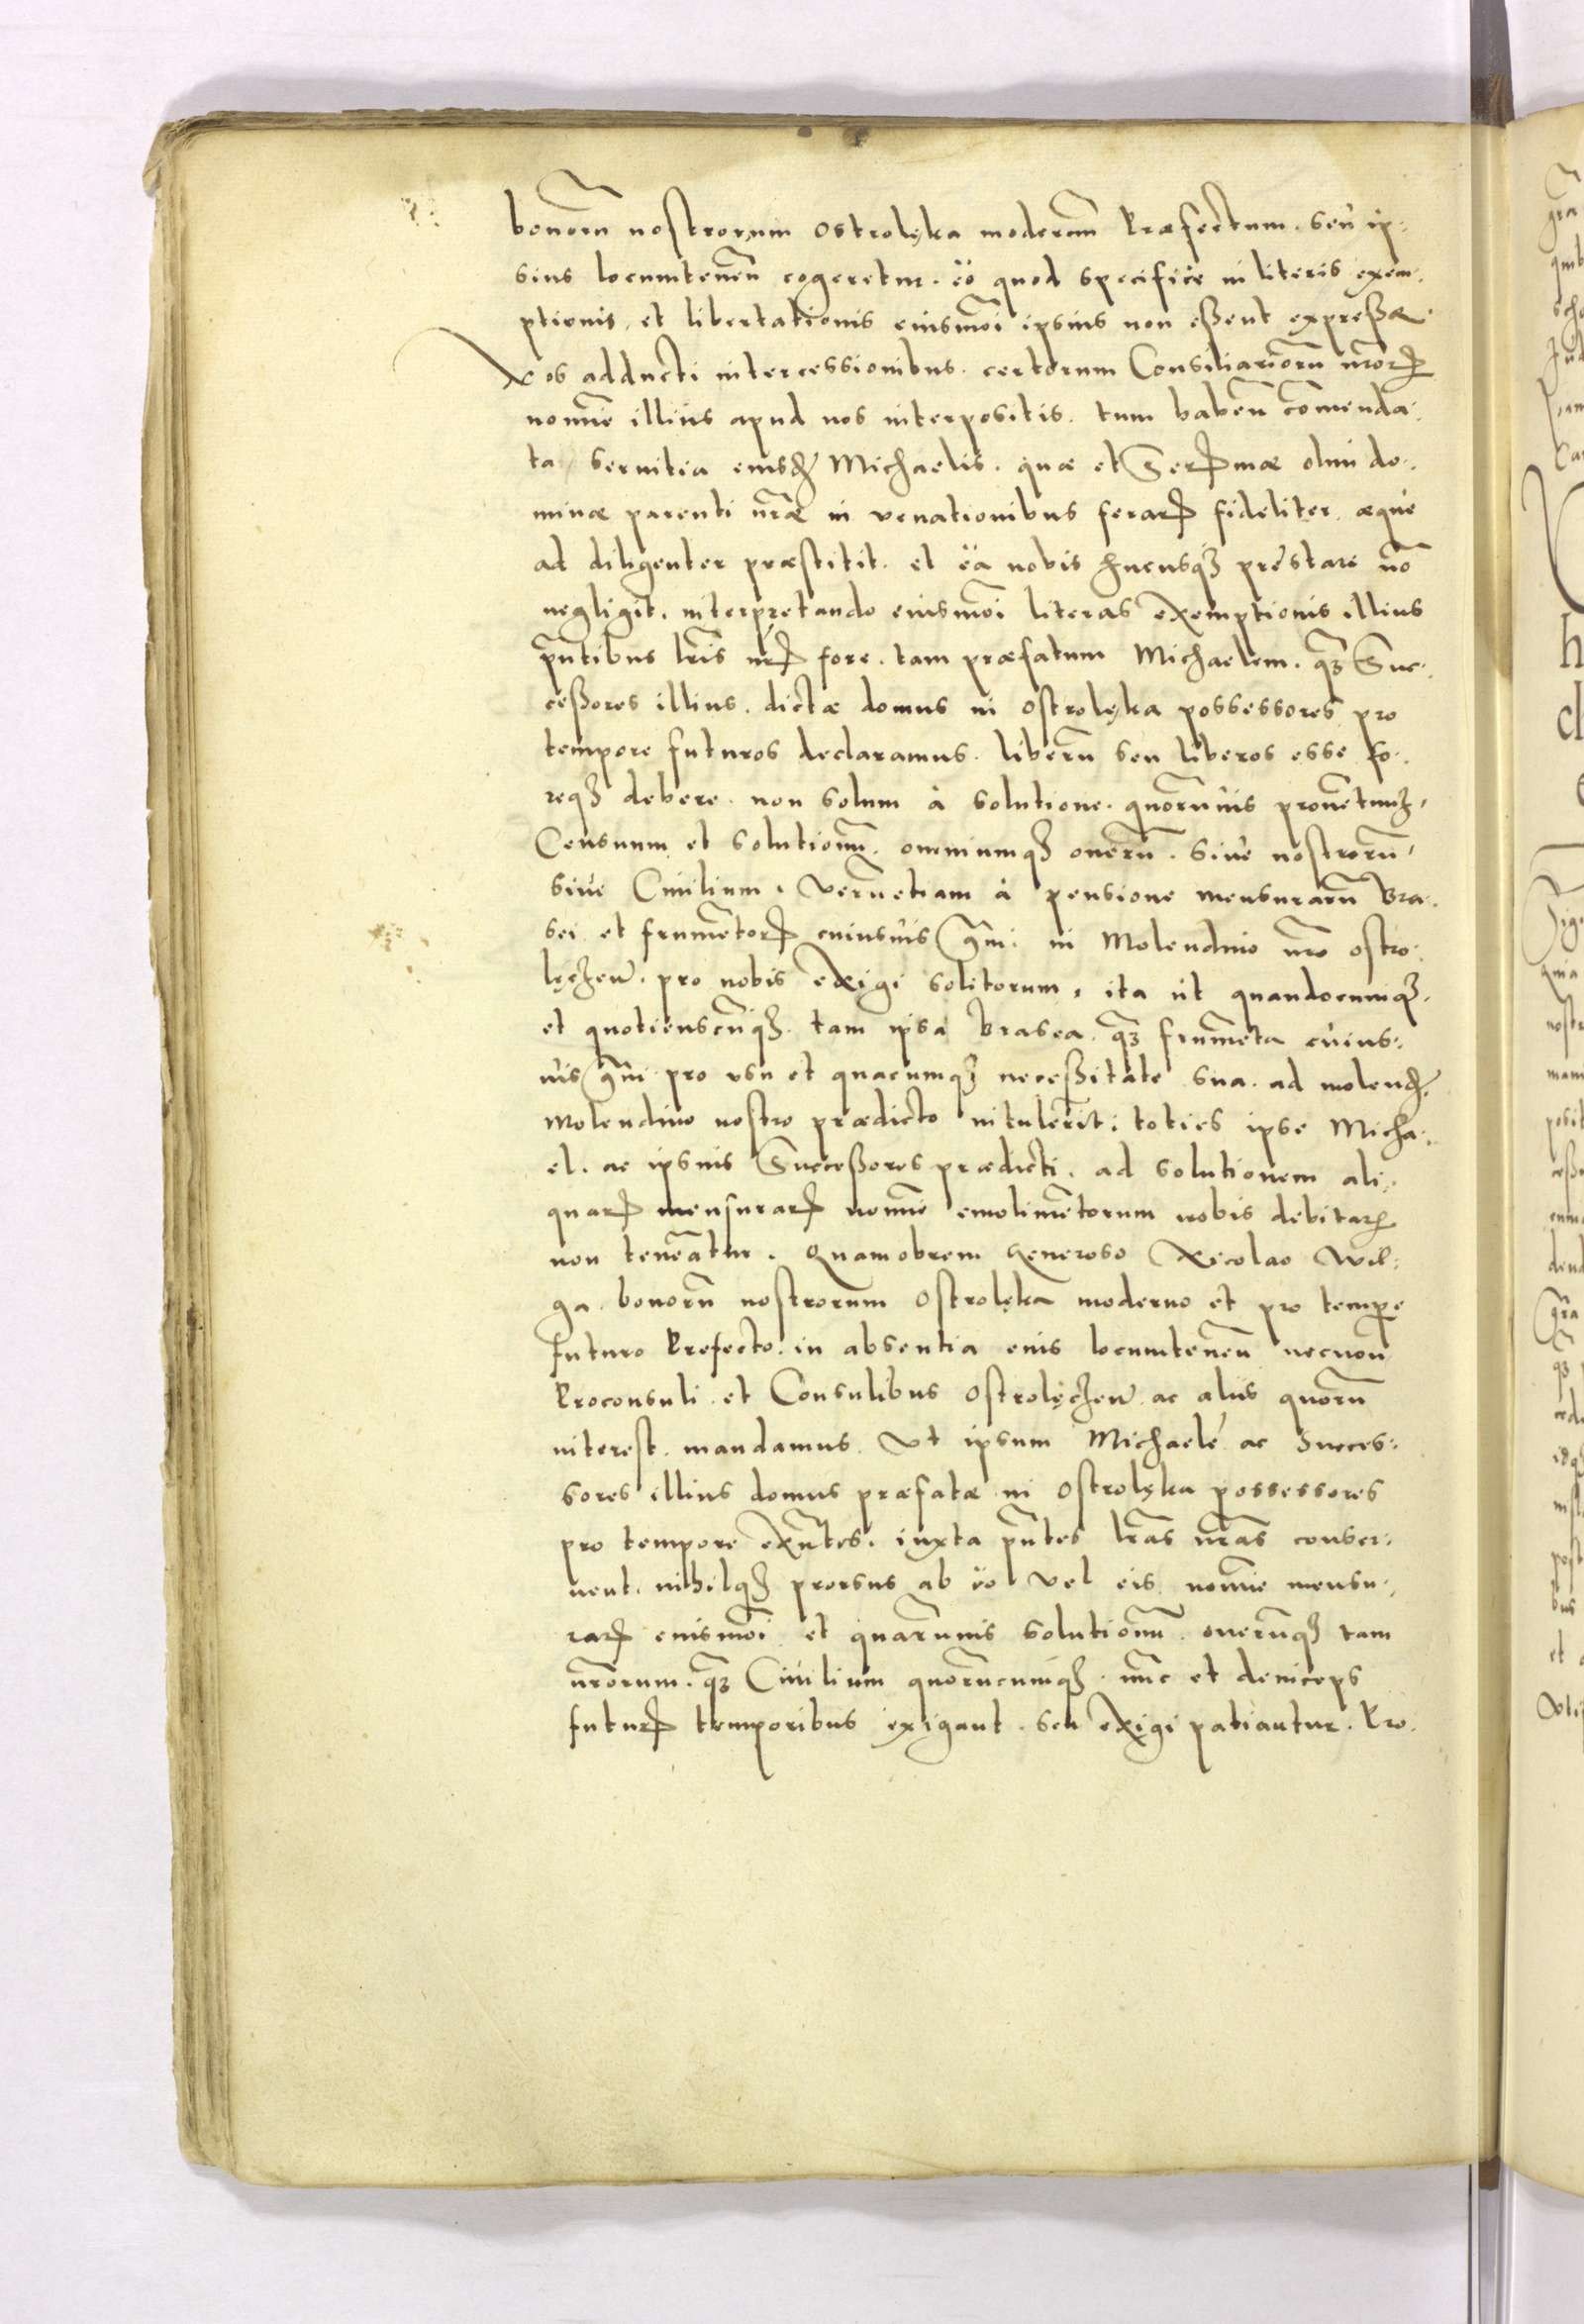 bonorū nostrorum Ostrolęka modernū Præfectum. seu ip-
sius locumtenen̄ cogeretur. eo quod specifice in literis exem-
ptionis et libertationis eiusmōi ipsius non essent expressæ.
Nos adducti intercessionibus certorum Consiliariorū nr̄orꝝ
nomīe illius apud nos interpositis. tum haben̄ cōmenda-
ta servitia eiusdꝫ Michaelis. quæ et Serꝝmæ olim do-
minæ parenti nr̄æ in venationibus ferarꝝ fideliter æque
ad diligenter præstitit. et ea nobis hucusqꝫ prestare nō
negligit. interpretando eiusmōi literas exemptionis illius
pn̄tibus lr̄is nr̄ꝝ fore. tam præfatum Michaelem. qꝫ Suc-
cessores illius. dictæ domus in Ostrolęka possessores pro
tempore futuros declaramus. liberū seu liberos esse fo-
reqꝫ debere. non solum à solutione. quorūvis provētuuꝫ
Censuum et solutionū. omniumqꝫ onerū. sive nostrorū
sive Civilium. verūetiam à pensione mensurarū Bra-
sei et frumētorꝝ cuiusvis gn̄i. in Molendino nr̄o ostro-
lęczen̄. pro nobis exigi solitorum. ita ut quandocumqꝫ
et quotienscūqꝫ. tam ipsa Brasea. qꝫ frumēta cuius-
vis gn̄i pro usu et quacumqꝫ necessitate sua. ad molendꝫ
Molendino nostro prædicto intulerit: toties ipse Micha-
el. ac ipsius Successores prædicti. ad solutionem ali-
quarꝝ mensurarꝝ nomīe emolimētorum nobis debitarꝝ
non teneātur. Quamobrem Generoso Nicolao Wil-
ga bonorū nostrorum Ostrolękā moderno et pro tempꝑe
futuro Prefecto. in absentia eius locumtenen̄ necnon
Proconsuli et Consulibus Ostrolęczen̄ ac aliis quorū
interest. mandamus. Ut ipsum Michaelē ac Succes-
sores illius domus præfatæ in Ostrolęka possessores
pro tempore exn̄tes. iuxta pn̄tes lr̄as nr̄as conser-
vent. nihilqꝫ prorsus ab eo vel eis nomīe mensu-
rarꝝ eiusmōi et quarūvis solutionū. onerūqꝫ tam
nr̄orum. qꝫ Civilium quorūcumqꝫ. nūc et deinceps
futurꝝ temporibus exigant. seu exigi patiantur. Pro-